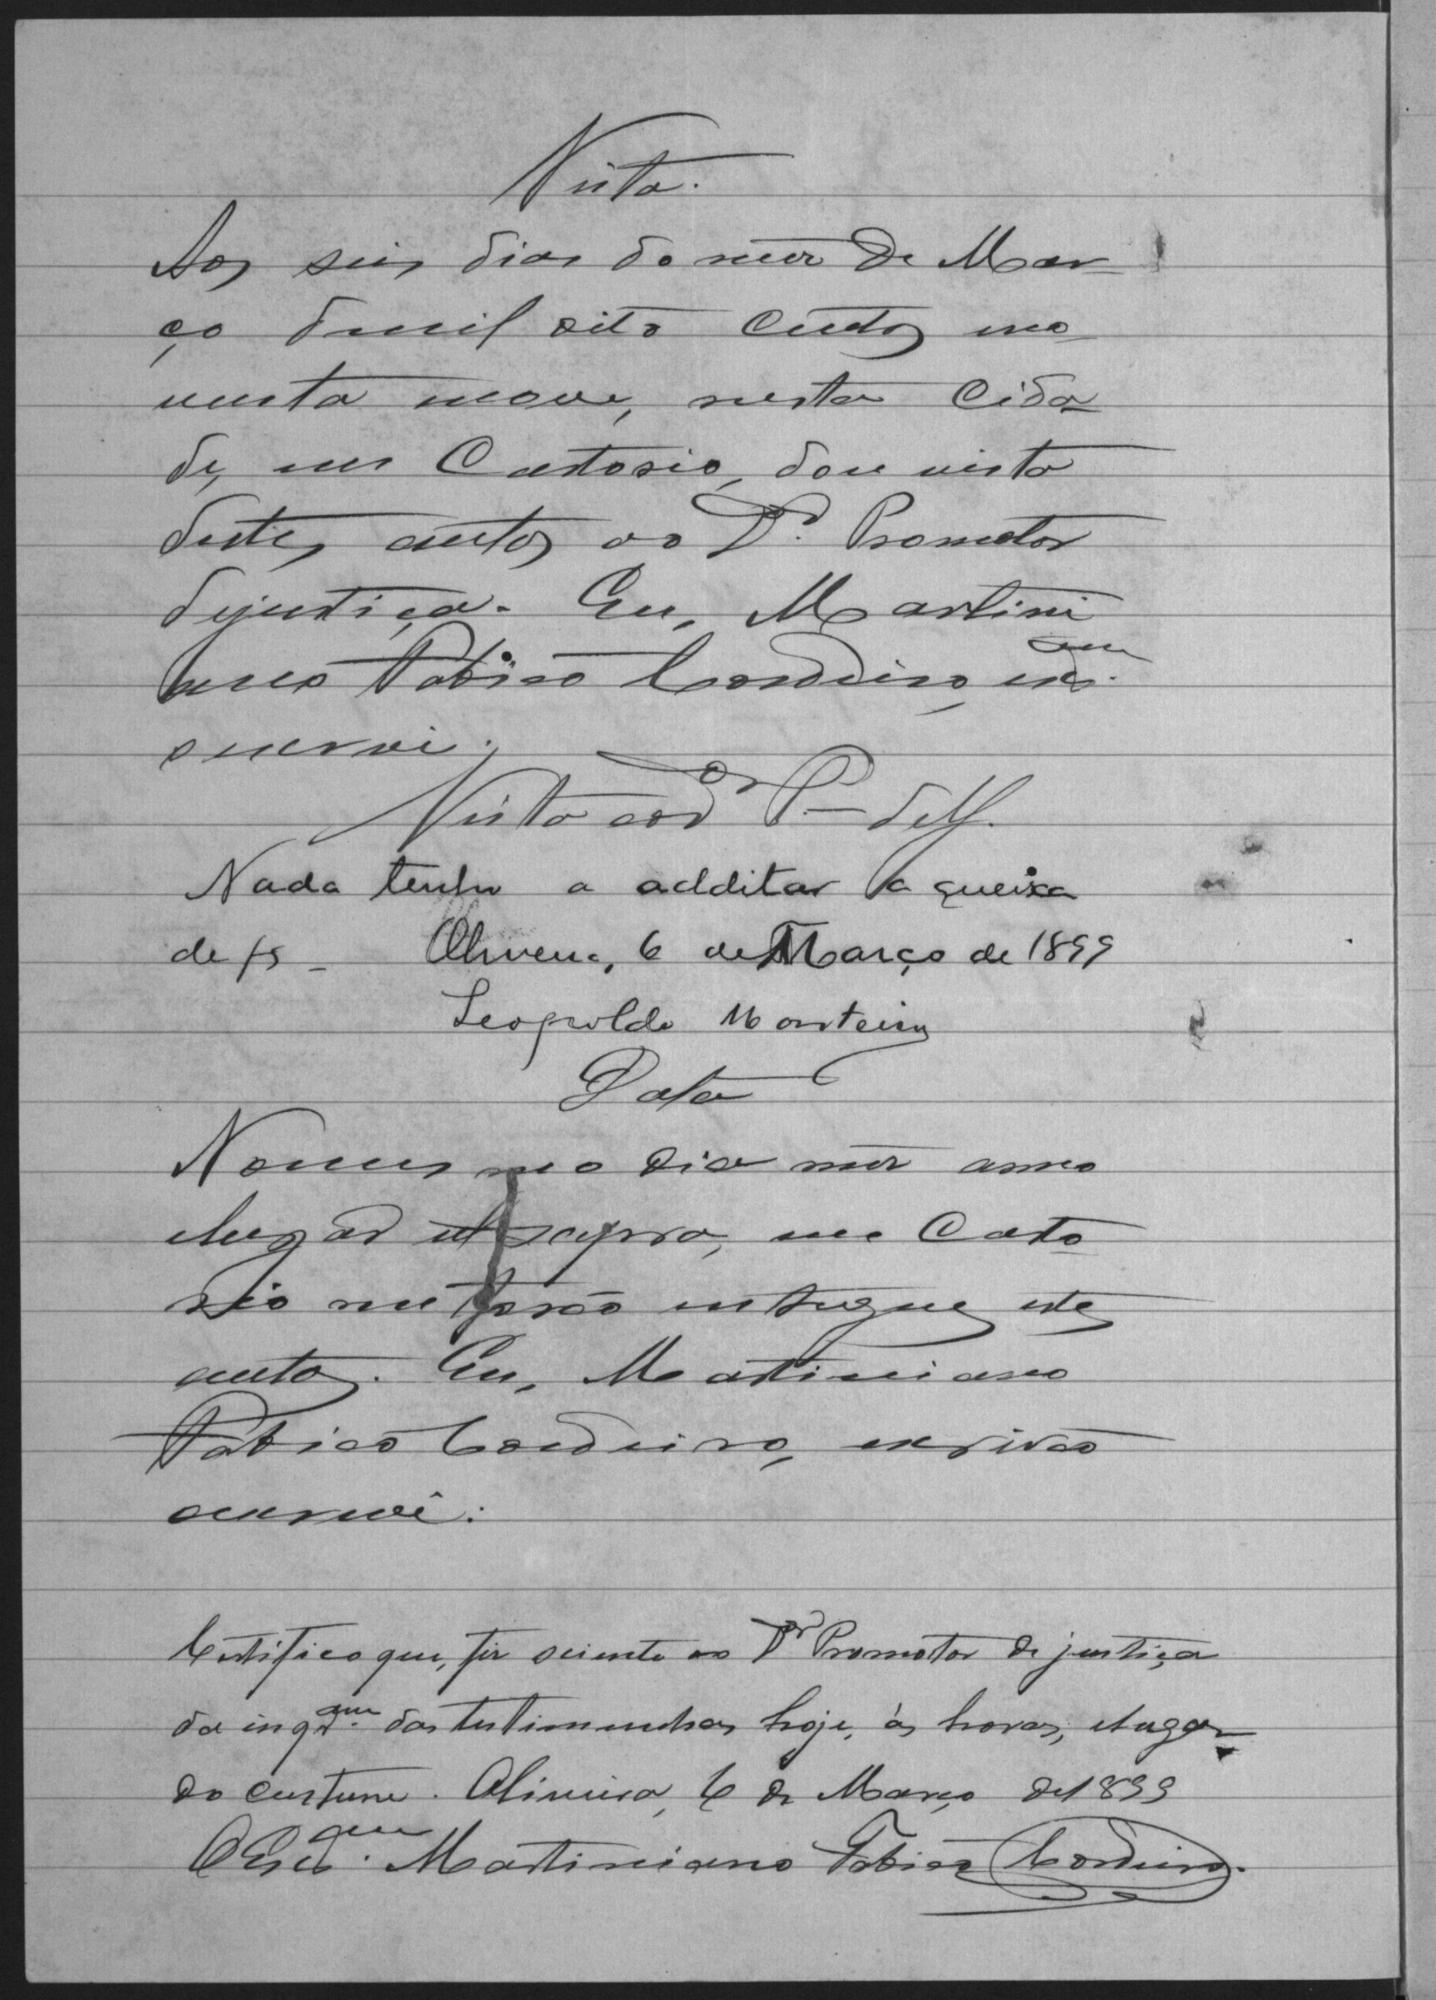 Vista.
Aos seis dias do mez de Mar-
ço d mil oito centos no-
venta nove, nesta Cida-
de, em Cartorio, dou vista
destes autos ao Dr. Promotor
dejustiça. Eu, Martini
ano Fabião Cordeiro,
escrevi.
Vista aod Dr P.
Nada tenho a additar a queixa
de fs _ Oliveira, 6 de Março de 1899
Leopoldo Monteiro
Data
No mesmo dia mez anno
elugar ut supra, em Carto
rio me forão entregues estes
autos. Eu, Martiniano
Fabião Cordeiro, escrivão
escrevi.
Certifico que, fiz sciente ao Dr Promotor de justiça
da inqção das testimunhas hoje, ás horas, elugar
do custume. Oliveira, 6 de Março de 1899
O Escam. Martiniano Fabião Cordeiro.